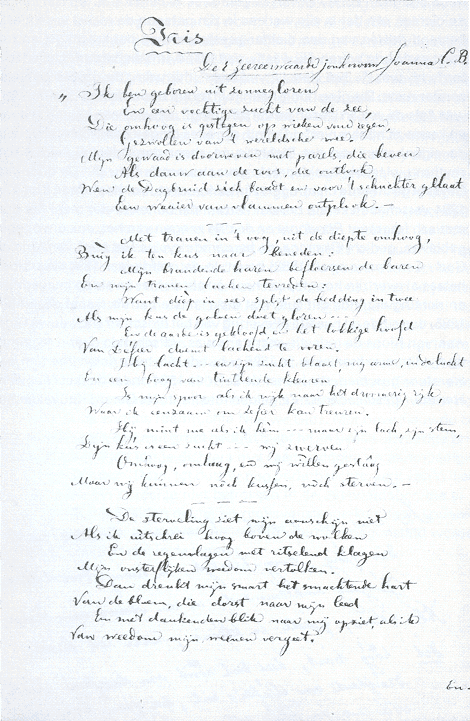 Iris
Der zeereerwaarde jonkvrouw Joanna C. B.
„ Ik ben geboren uit zonnegloren
En een vochtige zucht van de zee,
Die omhoog is gestegen op wieken van regen,
Gezwollen van 't wereldsche wee.
Mijn gewaad is doorweven met parels, die beven
Als dauw aan de roos, die ontlook,
Wen de Dagbruid zich baadt en voor 't schuchter gelaat
Een waaier van vlammen ontplook. —
Met tranen in 't oog, uit de diepte omhoog,
Buig ik ten kus naar beneden:
Mijn brandende haren befloersen de baren
En mijn tranen lachen tevreden:
Want diep in zee splijt de bedding in twee
Als mijn kus de golven doet gloren ...
En de aarde is gekloofd en het lokkige hoofd
Van Zefier duikt lachend te voren.
Hij lacht ... en zijn zucht blaast mij in de lucht
En een boog van tintlende kleuren
Is mijn spoor als ik wijk naar het droomerig rijk,
Waar ik eenzaam om Zefir kan treuren.
Hij mint me als ik hem ... maar zijn lach, zijn stem,
Zijn kus een zucht ... wij zwerven
Omhoog, omlaag, en wij willen gestaâg
Maar wij kunnen nòch kussen, nòch sterven. —
De sterveling ziet mijn aanschijn niet
Als ik uitschrei hoog boven de wolken
En de regenvlagen met ritselend klagen
Mijn onsterflijken weedom vertolken.
Dan drenkt mijn smart het smachtende hart
Van de bloem, die dorst naar mijn leed
En met dankenden blik naar mij opziet, als ik
Van weedom mijn weenen vergeet.
En